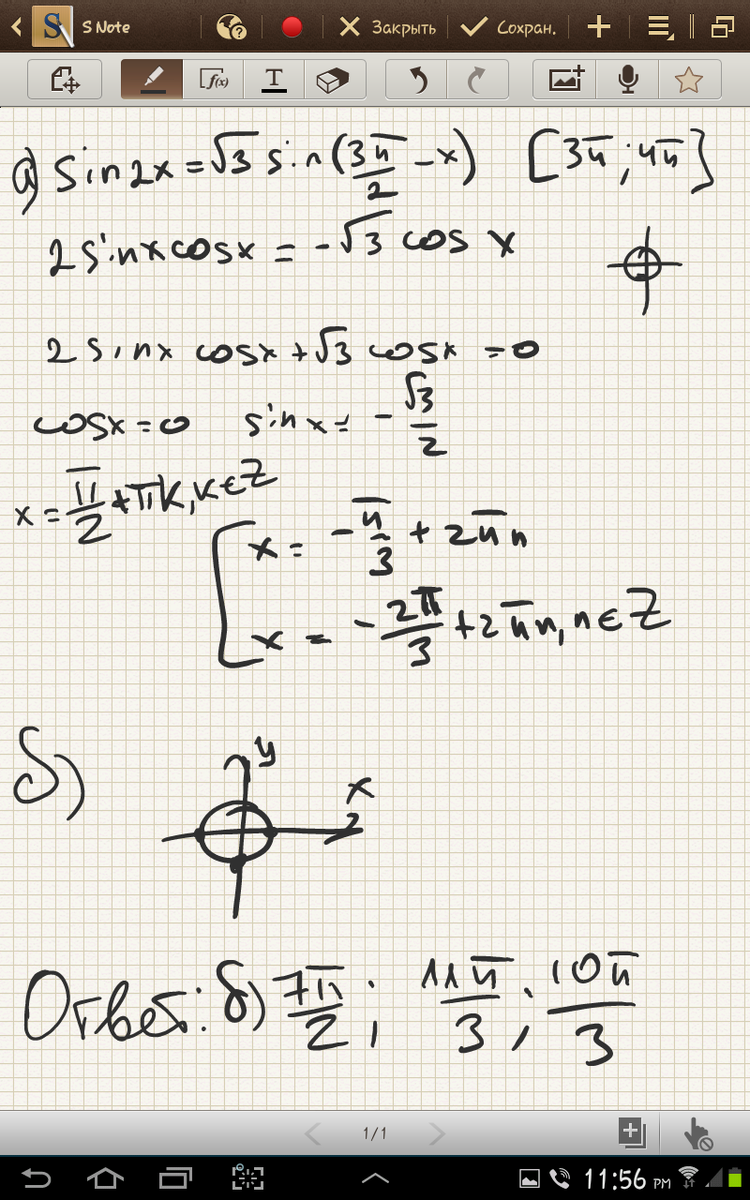 S Note Закрыть Сохран.
f(x) T
а) sin2x = √3 sin(3π/2 - x) [3π; 4π]
2 sinx cosx = -√3 cos x
2 sinx cosx + √3 cosx = 0
cosx = 0 sinx = -√3/2
x = π/2 + πk, k ∈ Z
x = -π/3 + 2πn
x = -2π/3 + 2πn, n ∈ Z
б)
y
x
Ответ: б) 7π/2; 11π/3; 10π/3
1/1
11:56 PM